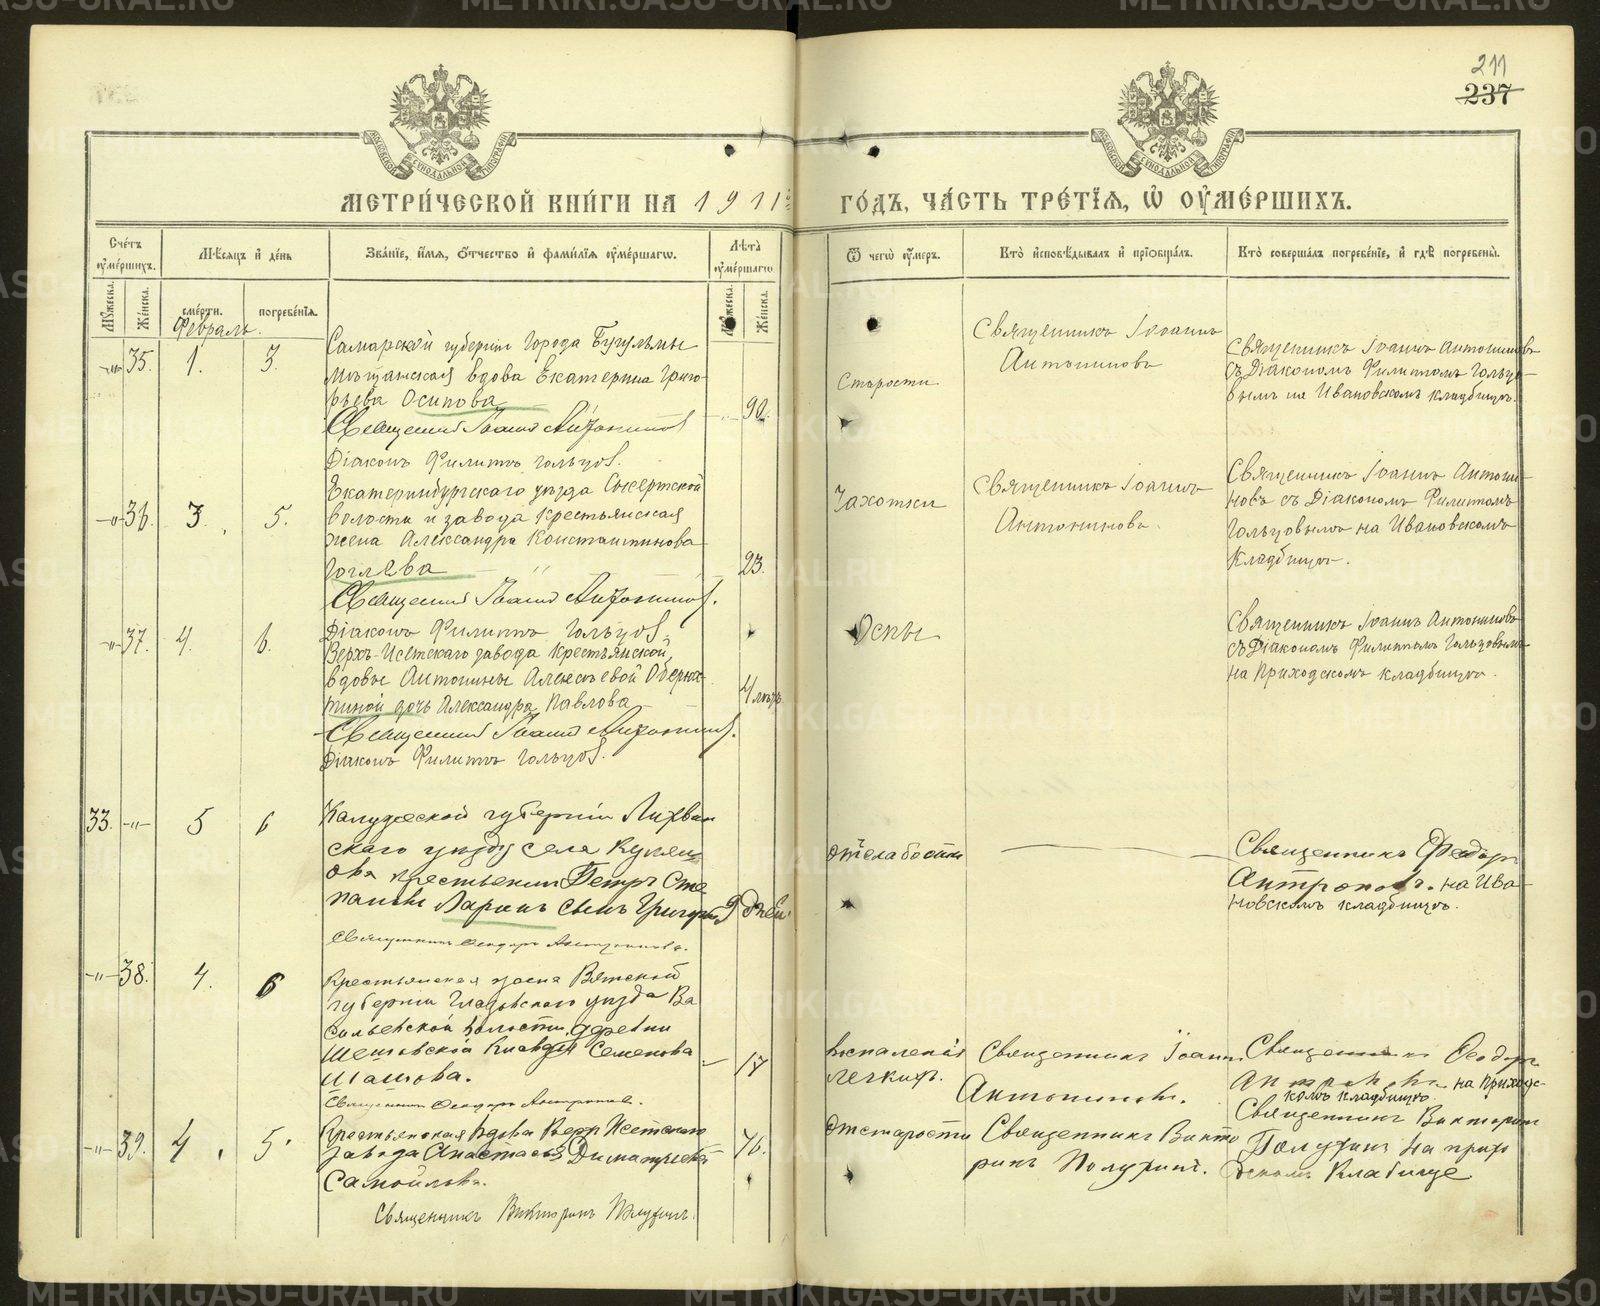 211
237
МЕТРИ́ЧЕСКОЙ КНИ́ГИ НА 1911й
ГО́ДЪ, ЧА́СТЬ ТРЕ́ТІѦ, Ѡ҆ ОУ҆МЕ́РШИХЪ.
Сче́тъ оу҆ме́ршихъ.
Мꙋ́жеска.
Же́нска.
Мѣ́сѧцъ и҆ де́нь
сме́рти.
погребе́нїѧ.
Зва́нїе, и҆́мѧ, ѻ҆́тчество и҆ фамилїѧ оу҆ме́ршагѡ.
Лѣ́та оу҆ме́ршагѡ
Мꙋ́жеска.
Же́нска.
Ѿ чегѡ̀ оу҆́меръ.
Кто̀ и҆сповѣ́дывалъ и҆ прїѡбща́лъ.
Кто̀ соверша́лъ погребе́нїе, и҆ гдѣ̀ погребены̀.
Февраль.
-"- 35. 1. 3.
Самарской губерніи Города Бугульмы
Мѣщанская вдова Екатерина Григо-
рьева Осипова
90.
Священникъ Іоаннъ Антониновъ
Діаконъ Филиппъ Гольцовъ.
Старости
Священникъ Іоаннъ
Антониновъ
Священникъ Іоаннъ Антониновъ
съ Діакономъ Филиппомъ Гольцо-
вымъ на Ивановскомъ кладбищѣ.
-"- 36. 3. 5.
Екатеринбургскаго уѣзда Сысертской
волости и завода Крестьянская
жена Александра Константинова
23.
Священникъ Іоаннъ Антониновъ.
Діаконъ Филиппъ Гольцовъ.
Чахотки
Священникъ Іоаннъ
Антониновъ.
Священникъ Іоаннъ Антони-
новъ съ Діакономъ Филиппомъ
Гольцовымъ на Ивановскомъ
Кладбищѣ.
-"- 37. 4. 6.
Верхъ-Исетскаго завода Крестьянской
вдовы Антонины Алексѣевой
дочь Александра Павлова
4 мѣс.
Священникъ Іоаннъ Антониновъ.
Діаконъ Филиппъ Гольцовъ.
Оспы
Священникъ Іоаннъ Антониновъ
съ Діакономъ Филиппомъ Гольцовымъ
на Приходскомъ кладбищѣ.
33. -"- 5 6
Калужской губерніи Лихвин
скаго уѣзда села
крестьянин Петръ Сте
пановъ Ларинъ сынъ Григорій
9 дней.
Священникъ Ѳеодоръ Антроповъ.
отъ слабости
Священникъ Ѳеодоръ
Антроповъ. на Ива-
новскомъ кладбищѣ.
-"- 38. 4. 6
Крестьянская жена Вятской
губерніи Глазовскаго уѣзда Ва
сильевской волости, деревни
Семенова
17
Священникъ Ѳеодоръ Антроповъ.
воспаленія
легкихъ.
Священникъ Іоаннъ
Антониновъ.
Священникъ Ѳеодоръ
Антроповъ на приход-
скомъ кладбищѣ
-"- 39. 4. 5.
Крестьянская вдова Верхъ Исетскаго
завода Анастасья Димитріева
Самойлова.
76.
Священникъ Викторинъ Полухинъ.
отъ старости
Священникъ Викто
ринъ Полухинъ.
Священникъ Викторинъ
Полухинъ на прихо
дскомъ Кладбище